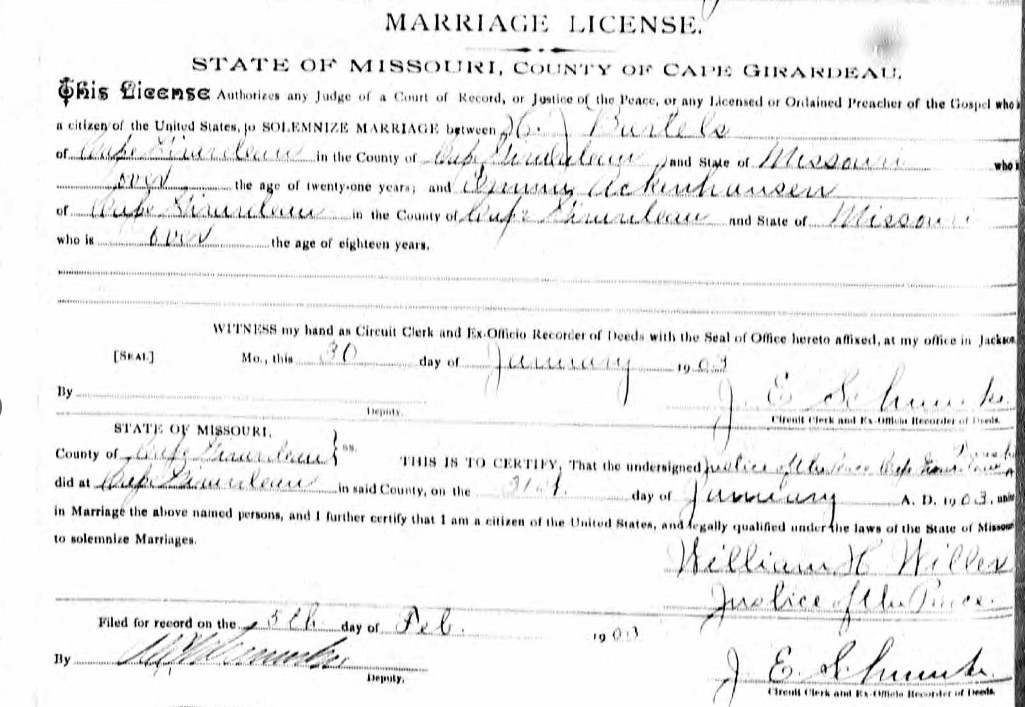 MARRIAGE LICENSE.
STATE OF MISSOURI, COUNTY OF CAPE GIRARDEAU.
This License Authorizes any Judge of a Court of Record, or Justice of the Peace, or any Licensed or Ordained Preacher of the Gospel who i
a citizen of the United States, to SOLEMNIZE MARRIAGE between H. J Bartels
of Cape Girardeau in the County of Cape Girardeau and State of Missouri who i
over the age of twenty-one years; and Emma Ackenhausen
of Cape Girardeau in the County of Cape Girardeau and State of Missouri
who is over the age of eighteen years.
WITNESS my hand as Circuit Clerk and Ex-Officio Recorder of Deeds with the Seal of Office hereto affixed, at my office in Jackson
[SEAL] Mo., this 30 day of January 1903
By J E
Deputy. Circuit Clerk and Ex-Officio Recorder of Deeds.
STATE OF MISSOURI,
County of Cape Girardeau } ss. THIS IS TO CERTIFY, That the undersigned Justice of the Peace Cape Girardeau
did at Cape Girardeau in said County, on the 31st. day of January A. D. 1903. unite
in Marriage the above named persons, and I further certify that I am a citizen of the United States, and legally qualified under the laws of the State of Missou
to solemnize Marriages.
William H Willer
Justice of the Peace.
Filed for record on the 5th day of Feb. 1903
By J E
Deputy. Circuit Clerk and Ex-Officio Recorder of Deeds.